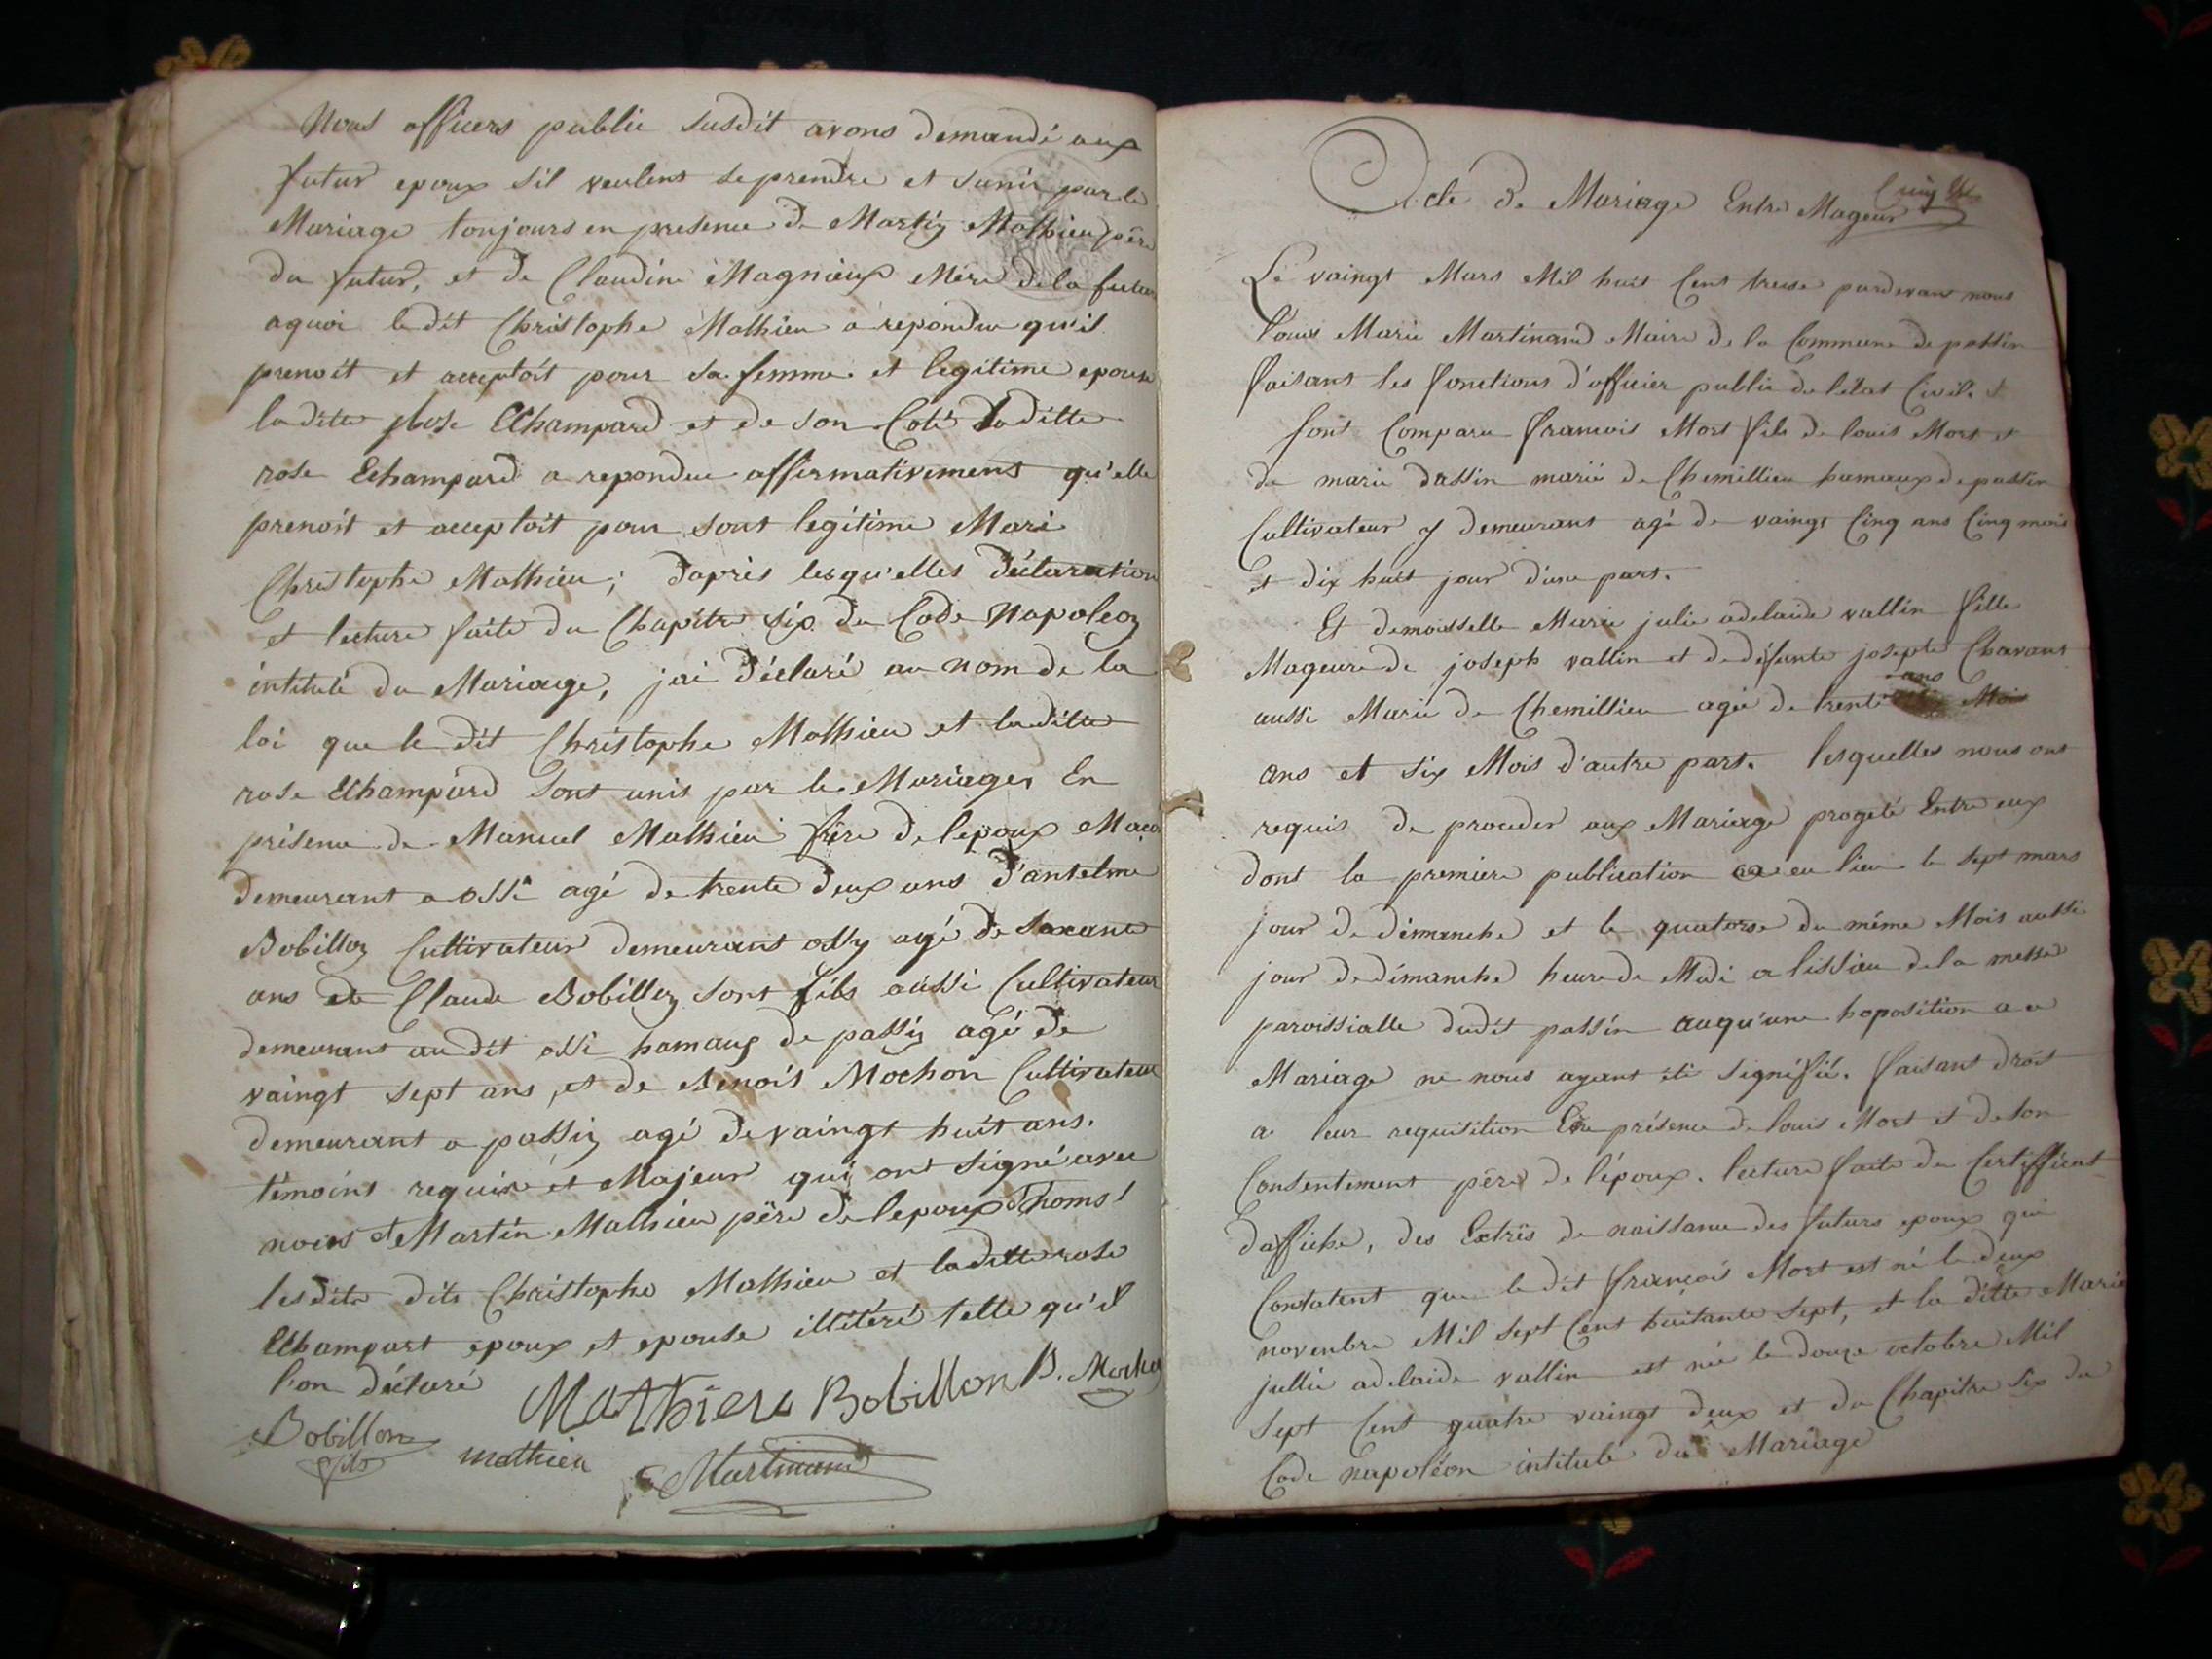 Nous officiers public susdit avons demandé aux
futur epoux s'il veulent se prendre et sunir par le
Mariage toujours en presence de Martin Mathieu père
du futur, et de Claudine Magnieux Mère de la futur
aquoi le dit Christophe Mathieu a repondu qu'il
prenoit et acceptoit pour sa femme et legitime epouse
ladite Rose Echampard et de son Coté laditte
rose Echampard a repondue affirmativement qu'elle
prenoit et acceptoit pour sont legitime Mari
Christophe Mathieu; daprès lesqu'elles déclaration
et lecture faite du Chapitre six du Code Napoleon
intitulé du Mariage, jai déclaré au nom de la
loi que le dit Christophe Mathieu et laditte
rose Echampard sont unis par le Mariage, En
présence de Manuel Mathieu frère de lepoux Maçon
demeurant a ossi agé de trente deux ans d'antelme
Bobillon Cultivateur demeurant ossy agé de soxante
ans et de Claude Bobillon sont fils aussi Cultivateur
demeurant au dit ossi hamaux de passin agé de
vaingt sept ans, et de Benoit Mochon Cultivateur
demeurant a passin agé de vaingt huit ans.
témoins requis et Majeur qui ont signé avec
nous et Martin Mathieu père de lepoux
lesdits dits Christophe Mathieu et laditte rose
Echampart epoux et epouse illitéré telle qu'il
l'on déclaré
Mathieu Bobillon B. Mochon
Bobillon fils mathieu Martinand
Acte de Mariage Entre Mageur
Le vaingt Mars Mil huit Cent treise pardevant nous
Louis Marie Martinand Maire de la Commune de passin
faisant les fonctions d'officier public de l'etat Civil.
sont Comparu francois Mort fils de louis Mort et
de marie dassin marié de Chemillieu hamaux de passin
Cultivateur y demeurant agé de vaingt Cinq ans Cinq mois
et dix huit jour d'une part.
Et demoisselle Marie julie adelaide vallin fille
Mageure de joseph vallin et de défunte josepte Chavant
aussi Marié de Chemillieu agée de trente ans
ans et six Mois d'autre part. lesquelles nous ont
requis de proceder aux Mariage progeté Entre eux
dont la premiere publication a eu lieu le sept mars
jour de dimanche et le quatorse du même Mois aussi
jour de dimanche heure de Midi a lissieu de la messe
paroissialle dudit passin auqu'une hoposition a a
Mariage ne nous ayant été signifié. faisant droit
a leur requisition En présence de louis Mort et de son
Consentement père de l'époux. lecture faite du Certifficat
d'affiche, des Extrès de naissance des futurs epoux qui
Constatent que le dit françois Mort est né le deux
novenbre Mil sept Cent huitante sept, et la ditte Marie
jullie adelaide vallin est née le douze octobre Mil
sept Cent quatre vaingt deux et du Chapitre six du
Code napoléon intitulé du Mariage